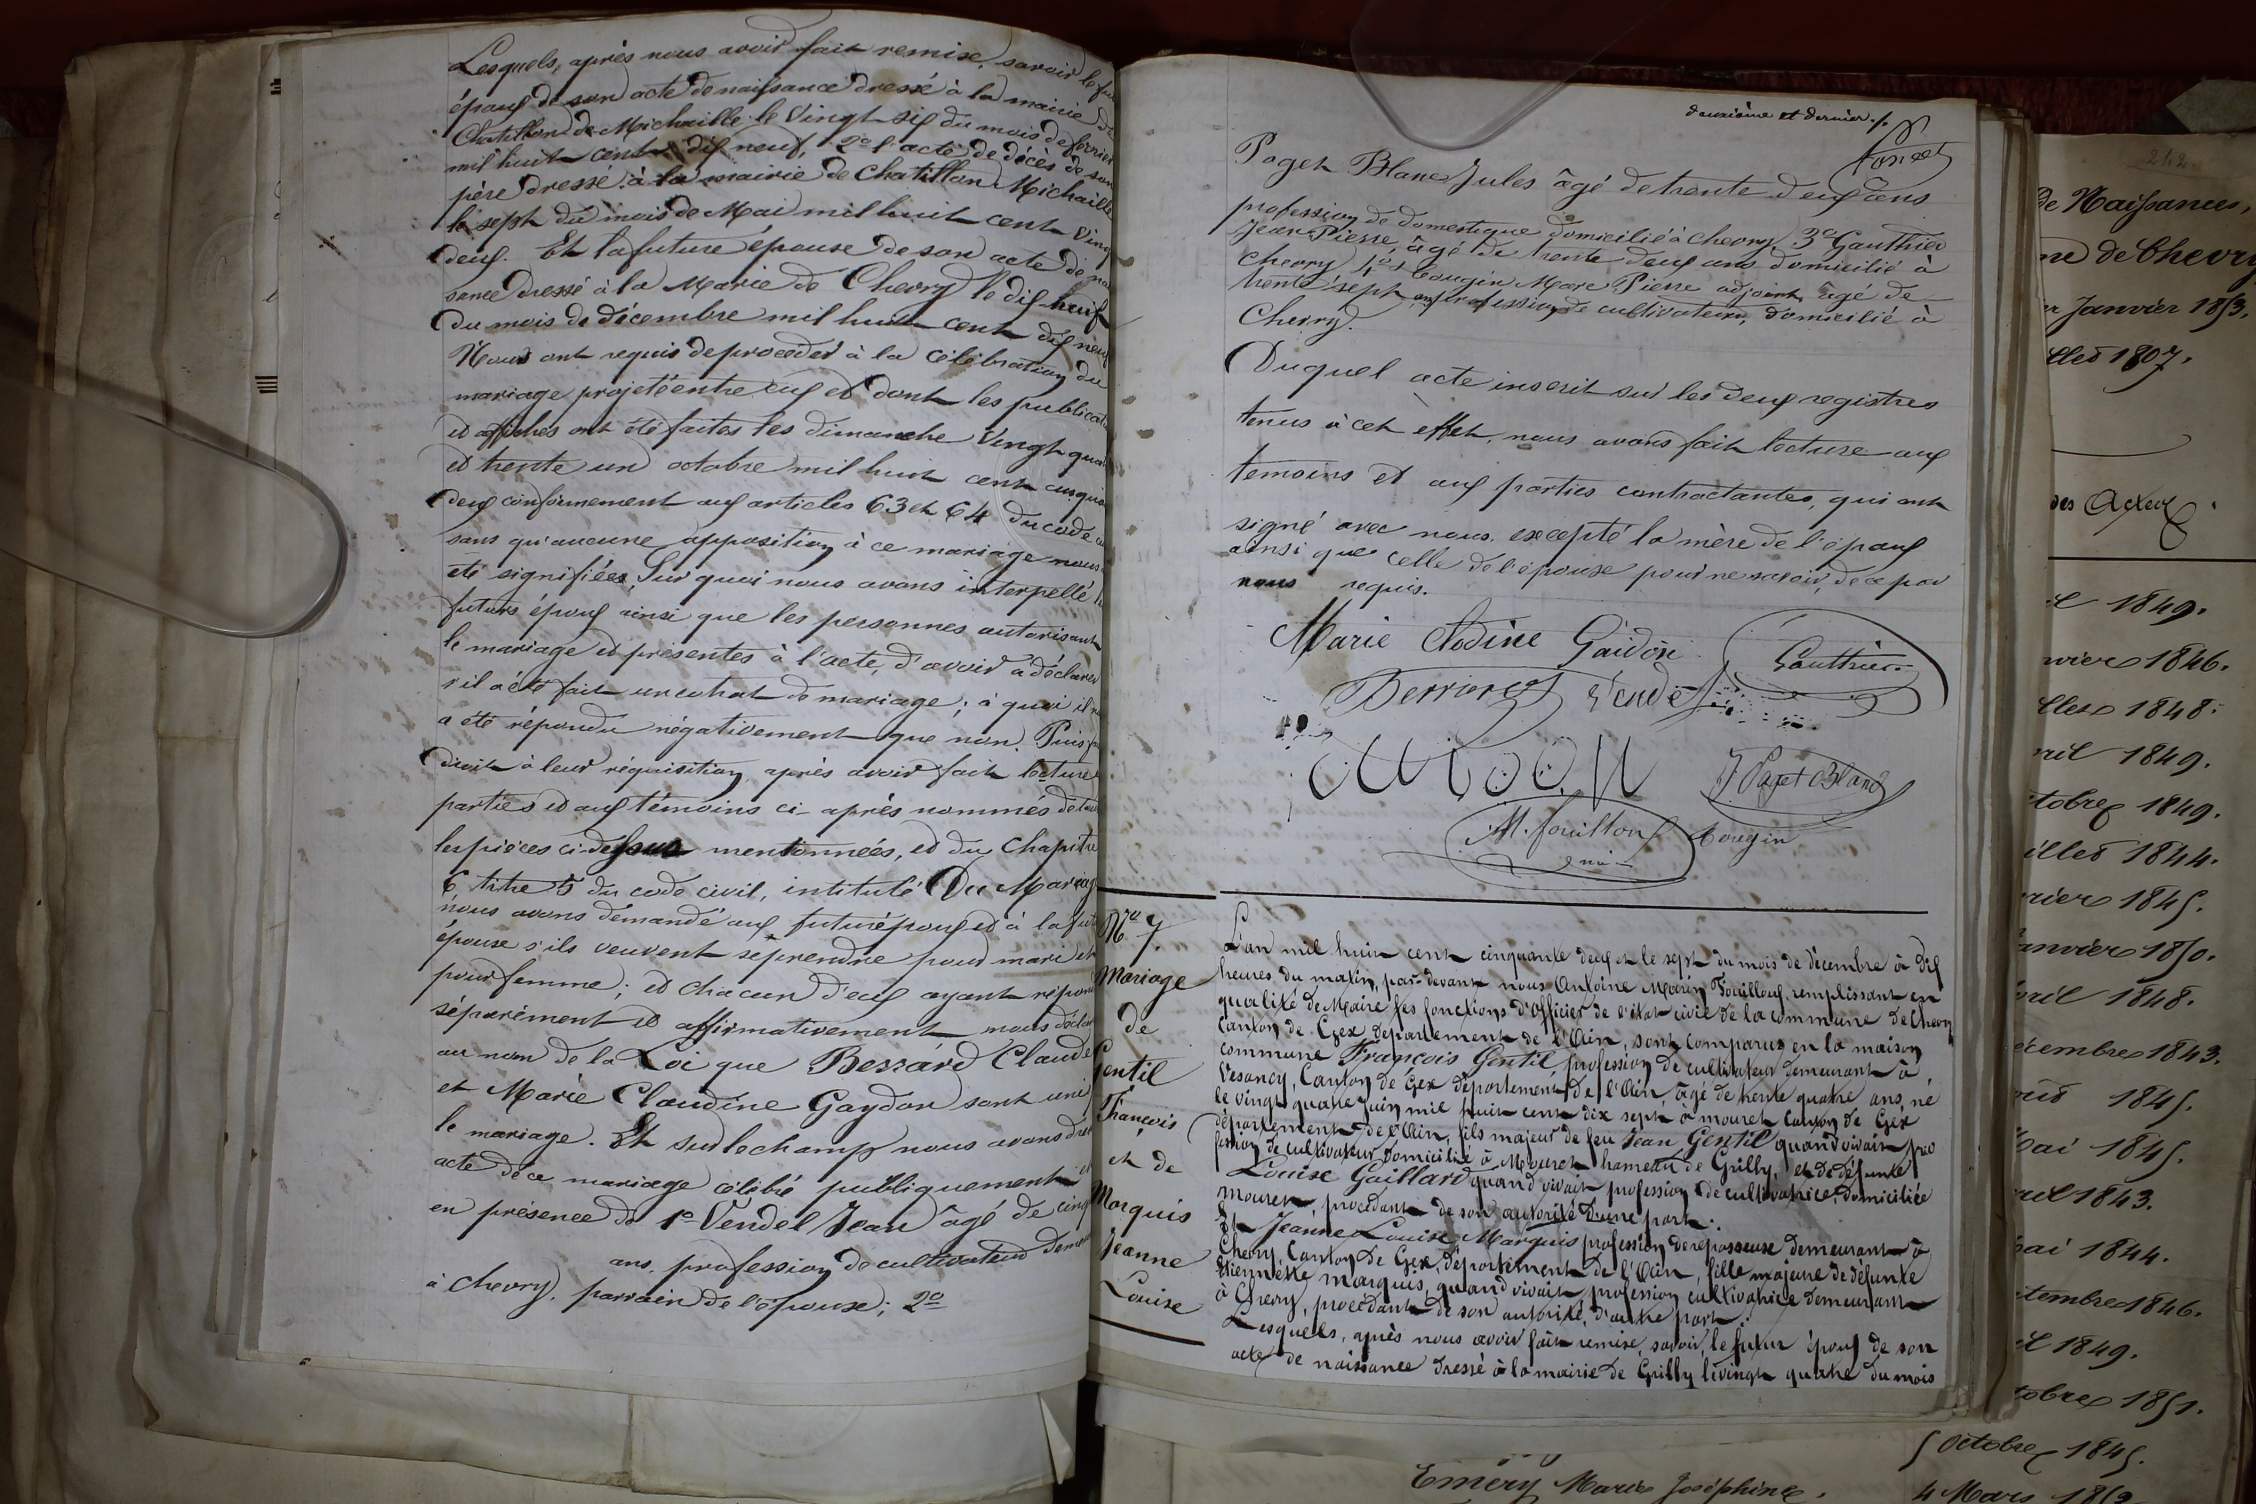 Lesquels, après nous avoir fait remise, savoir le fu
époux de son acte de naissance dressé à la mairie de
Chatillon de Michaille le Vingt six du mois de février
mil huit cent dix neuf, 2º l'acte de décès de son
père dressé à la mairie de Chatillon Michaille
le sept du mois de Mai mil huit cent Vingt
deux. Et la future épouse de son acte de nai
sance dressé à la Marie de Chevry le dix neuf
du mois de décembre mil huit cent dix neuf
Nous ont requis de procéder à la célébration du
mariage projeté entre eux et dont les publicati
et affiches ont été faites les dimanche Vingt quat
et trente un octobre mil huit cent cinquan
deux conformement aux articles 63 et 64 du code
sans qu'aucune opposition à ce mariage nous
été signifiées, Sur quoi nous avons interpellé le
futurs époux ainsi que les personnes autorisant
le mariage et présentes à l'acte, d'avoir à déclarer
s'il a été fait un contrat de mariage; à quoi il n
a été répondu négativement que non. Puis
droit à leur réquisition après avoir fait lecture
parties et aux témoins ci-après nommés de tou
les pièces ci-dessus mentonneés, et du Chapitre
6 titre 5 du code civil, intitulé Du Mariag
nous avons demandé aux futur époux et à la fut
épouse s'ils veuvent se prendre pour mari et
pour femme; et chacun d'eux ayant répon
séparément et affirmativement nous décla
au nom de la Loi que Bezzard Claude
et Marie Claudine Gaydon sont uni
le mariage. Et sur le champ nous avons dre
acte de ce mariage célébré publiquement et
en présence de 1º Vendel Jean âgé de cinq
ans, profession de cultivateur deme
à chevry, parrain de l'épouse; 2º
deuxième et dernier./.
Poncet
Paget Blanc Jules âgé de trente deux ans
profession de domestique domicilié à chevry 3º Gauthier
Jean Pierre, âgé de trente deux ans domicilié à
chevry 4º Gougin Marc Pierre adjoint, âgé de
trente sept ans profession de cultivateur, domicilié à
Chevry.
Duquel acte inscrit sur les deux registres
tenus à cet effet, nous avons fait lecture aux
temoins et aux parties contractantes, qui ont
signé avec nous, excepté la mère de l'époux
ainsi que celle de l'épouse pour ne savoir, de ce par
nous requis.
Marie Clodine Gaidon
Gauthier
J Paget Blanc
M. fouilloux
Gougin
Nº 7.
Mariage
de
Gentil
François
et de
Marquis
Jeanne
Louise
L'an mil huit cent cinquante deux et le sept du mois de décembre à dix
heures du matin, par-devant nous Antoine Marin Fouilloux, remplissant en
qualité de Maire les fonctions d'Officier de l'état civil de la commune de Chevry
Canton de Gex departement de l'Ain, sont comparus en la maison
commune François Gentil profession de cultivateur demeurant à
Vesancy, Canton de Gex département de l'Ain, âgé de trente quatre ans, né
le vingt quatre Juin mil huit cent dix sept à mouret Canton de Gex
département de l'Ain, fils majeur de feu Jean Gentil quand vivait pro
fession de cultivateur domicilié à Mouret hameau de Grilly, et de défunte
Louise Gaillard quand vivait profession de cultivatrice, domiciliée
mouret, procédant de son autorité d'une part.
Et Jeanne Louise Marquis profession de repasseuse demeurant à
Chevry, Canton de Gex, département de l'Ain, fille majeure de défunte
Etiennette Marquis, quand vivait profession cultivatrice demeurant
à Chevry, procédant de son autorité, d'autre part.
Lesquels, après nous avoir fait remise, savoir, le futur époux de son
acte de naissance dressé à la mairie de Grilly le vingt quatre du mois
212
de Naissances,
ne de Chevry
er Janvier 1853.
illet 1807.
des Actes
il 1849.
nvier 1846.
illet 1848.
vril 1849.
ctobre 1849.
uillet 1844.
vrier 1845.
anvier 1850.
vril 1848.
écembre 1843.
1845.
Mai 1845.
vril 1843.
Mai 1844.
ptembre 1846.
il 1849.
ctobre 1851.
5 Octobre 1845.
Eméry Marie Joséphine.
4 Mars 1852